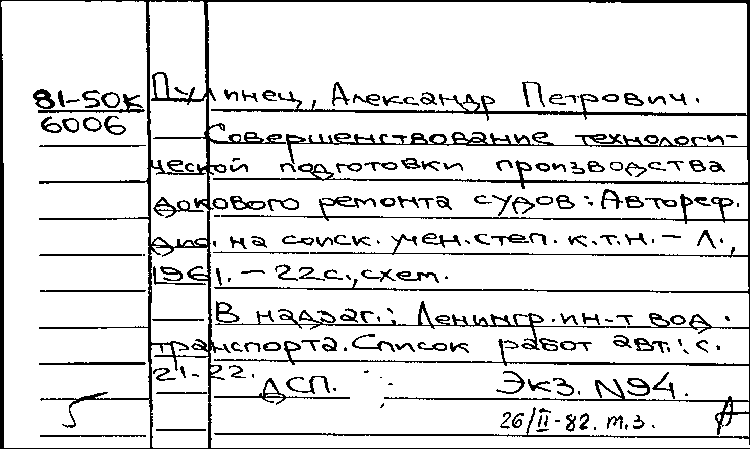 81-50к Пулинец, Александр Петрович.
6006 Совершенствование технологи-
ческой подготовки производства
докового ремонта судов: Автореф.
дис. на соиск. учен. степ. к.т.н. - Л.,
1961. - 22с., схем.
В надзаг.: Ленингр. ин-т вод.
транспорта. Список работ авт.: с.
21-22.
ДСП. Экз. N94.
26/II-82. т.з.